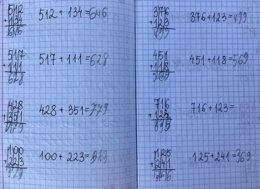 512
+134
646
512 + 134 = 646
517
+111
628
517 + 111 = 628
428
+351
779
428 + 351 = 779
100
+223
100 + 223 =
376
+123
499
376 + 123 = 499
451
+118
569
451 + 118 = 569
716
+123
716 + 123 =
125
+241
125 + 241 =